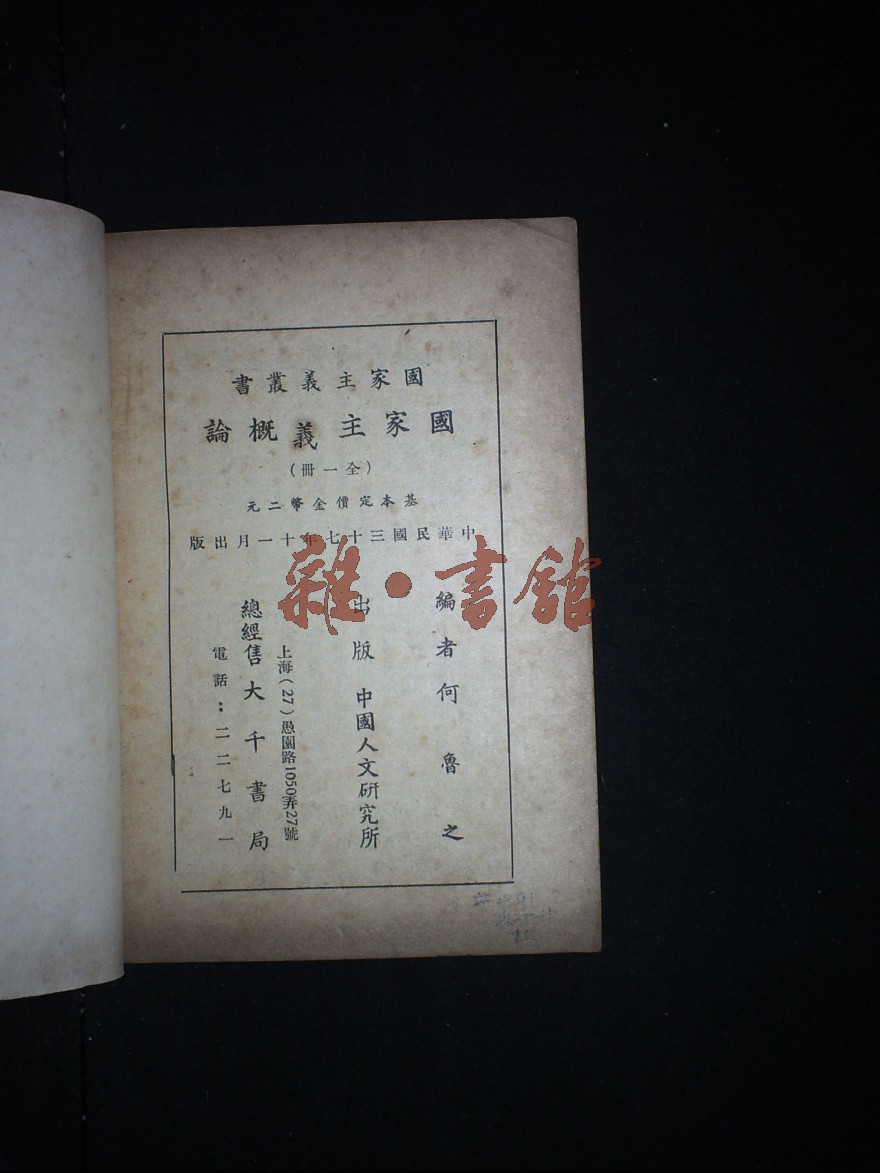 國家主義叢書
國家主義概論
(全一冊)
基本定價金幣二元
中華民國三十七年十一月出版
編者何魯之
出版中國人文研究所
上海(27)愚園路1050弄27號
總經售大千書局
電話:二二七九一
雜·書館